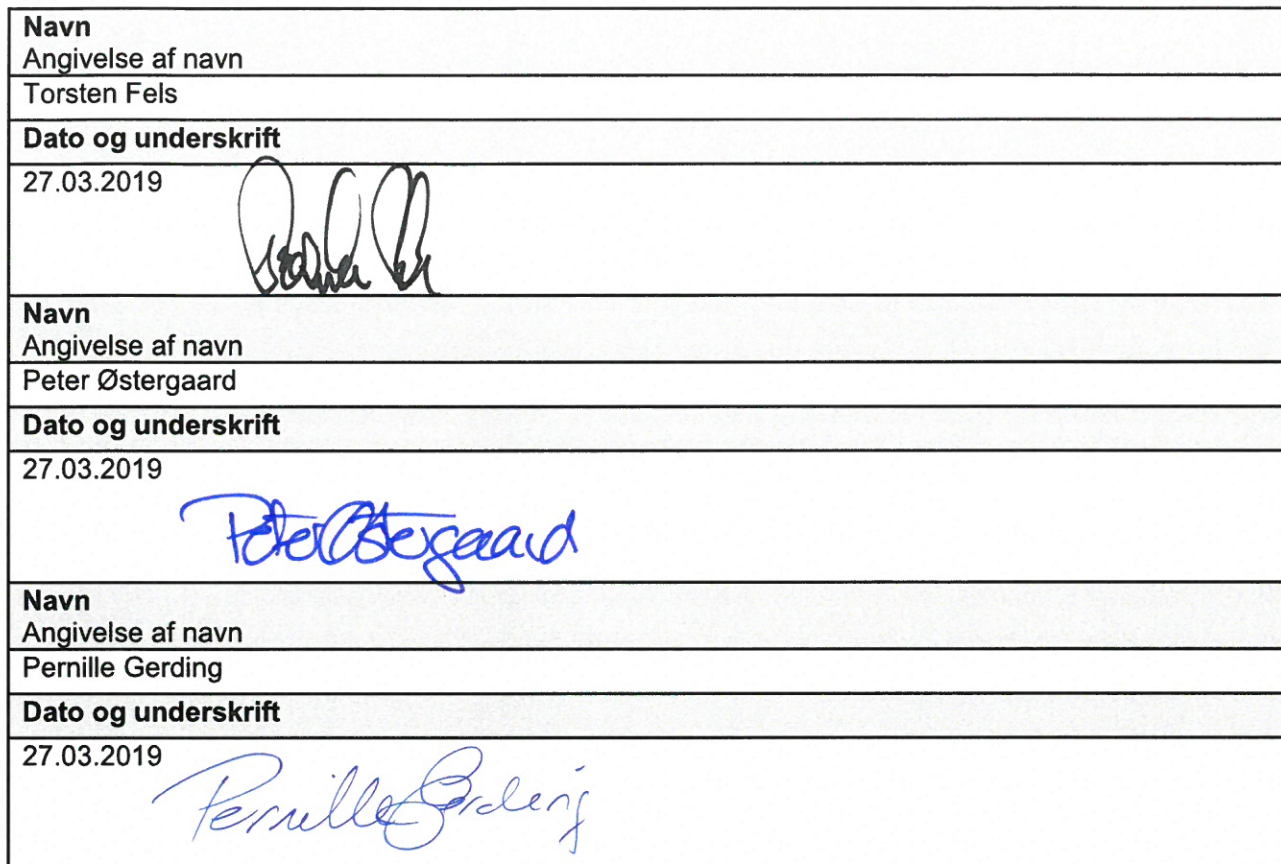 Navn
Angivelse af navn
Torsten Fels
Dato og underskrift
27.03.2019
Navn
Angivelse af navn
Peter Østergaard
Dato og underskrift
27.03.2019
Peter Østergaard
Navn
Angivelse af navn
Pernille Gerding
Dato og underskrift
27.03.2019
Pernille Gerding